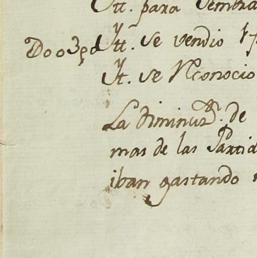 Ytt. para sembra
Ytt. se vendio
Yt. se Reconocio
La diminuz.n de
mas de las Partid
iban gastando